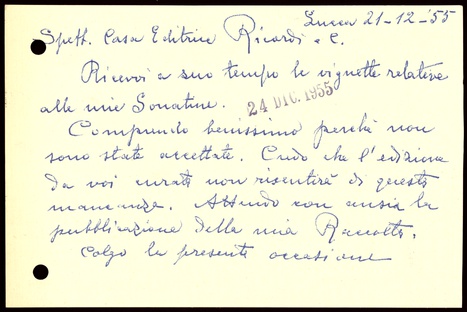 Lucca 21-12-'55
Spett. Casa Editrice Ricordi e C.
Ricevei a suo tempo le vignette relative
alle mie Sonatine.
24 DIC. 1955
Comprendo benissimo perchè non
sono state accettate. Credo che l'edizione
da voi curata non risentirà di questa
mancanza. Attendo con ansia la
pubblicazione della mia Raccolta.
Colgo la presente occasione